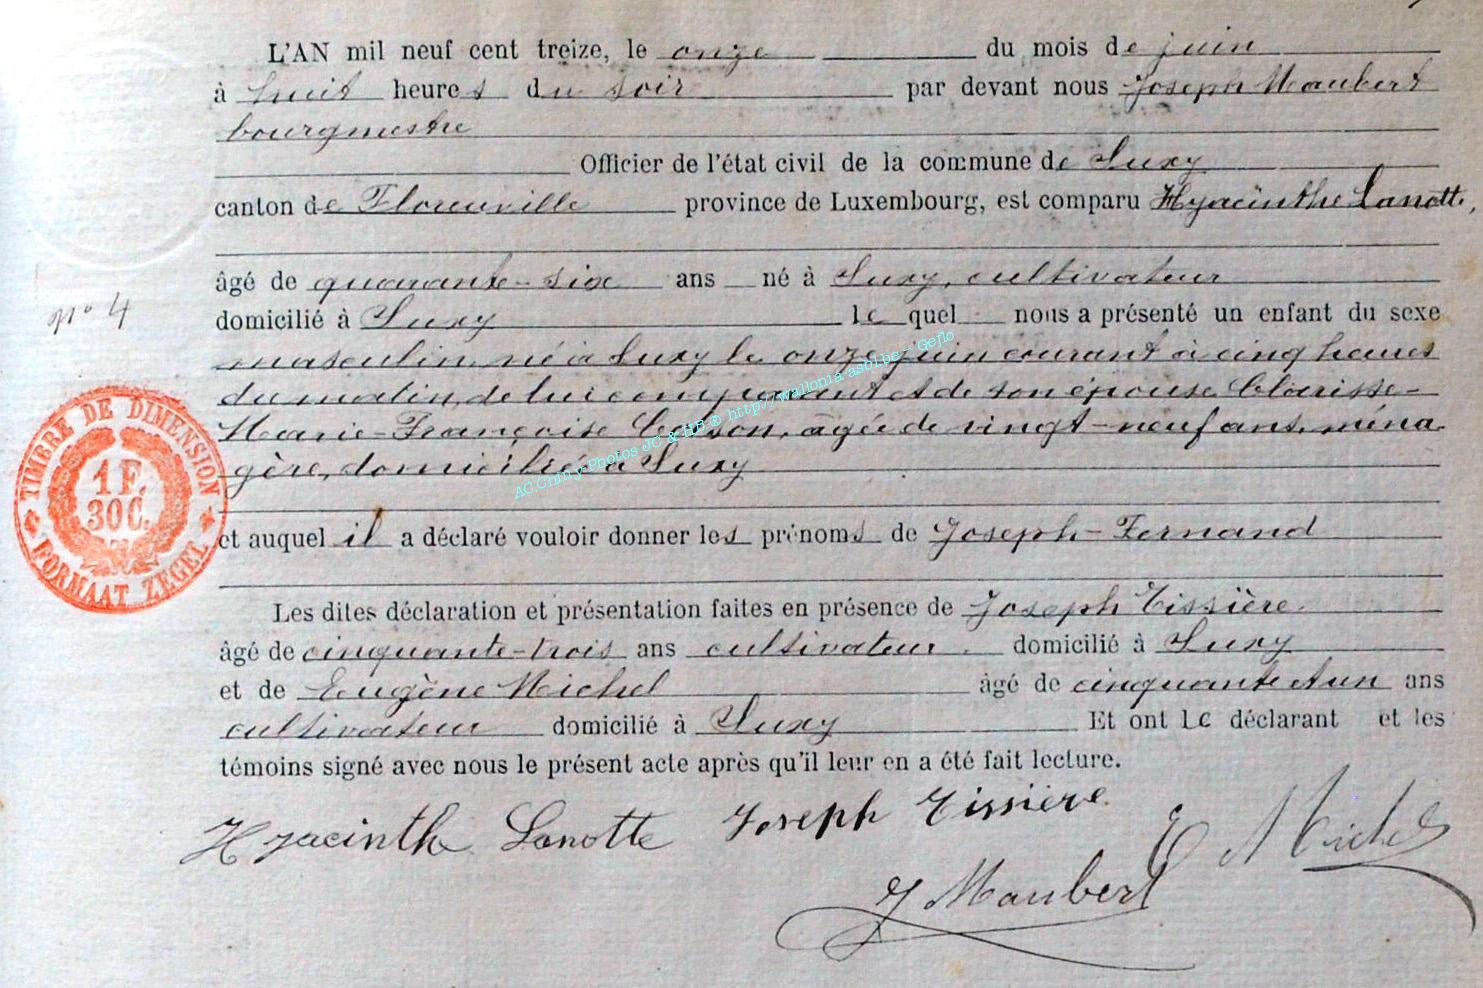 L'AN mil neuf cent treize, le onze du mois de juin
à huit heures du soir par devant nous Joseph Maubert
bourgmestre
Officier de l'état civil de la commune de Suxy
canton de Florenville province de Luxembourg, est comparu Hyacinthe Lanotte,
âgé de quarante-six ans né à Suxy, cultivateur
nº 4
domicilié à Suxy lequel nous a présenté un enfant du sexe
masculin, né à Suxy le onze juin courant à cinq heures
du matin, de lui comparant et de son épouse Clarisse-
Marie-Françoise Casson, âgée de vingt-neuf ans, ména-
gère, domicilié à Suxy
AC.Chiny-Photos JC & http://wallonia-asbl.be - Geflo
TIMBRE DE DIMENSION
1 F.
30 C.
FORMAAT ZEGEL
et auquel il a déclaré vouloir donner les prénoms de Joseph-Fernand
Les dites déclaration et présentation faites en présence de Joseph Tissière
âgé de cinquante-trois ans cultivateur domicilié à Suxy
et de Eugène Michel âgé de cinquante et un ans
cultivateur domicilié à Suxy Et ont le déclarant et les
témoins signé avec nous le présent acte après qu'il leur en a été fait lecture.
Hyacinthe Lanotte Joseph Tissière E Michel
J Maubert